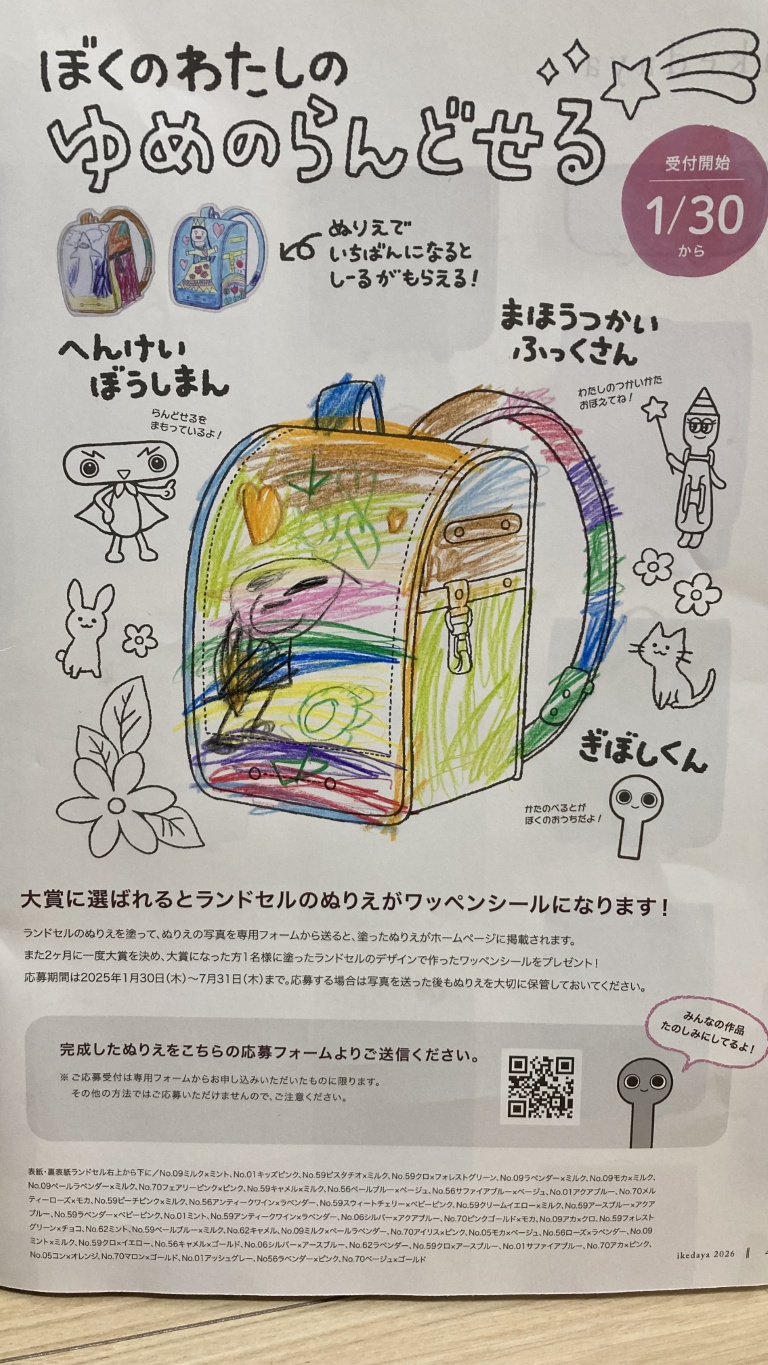 ぼくのわたしの
ゆめのらんどせる
受付開始
1/30
から
ぬりえで
いちばんになると
しーるがもらえる！
へんけい
ぼうしまん
らんどせるを
まもっているよ！
まほうつかい
ふっくさん
わたしのつかいかた
おぼえてね！
ぎぼしくん
かたのべるとが
ぼくのおうちだよ！
大賞に選ばれるとランドセルのぬりえがワッペンシールになります！
ランドセルのぬりえを塗って、ぬりえの写真を専用フォームから送ると、塗ったぬりえがホームページに掲載されます。
また2ヶ月に一度大賞を決め、大賞になった方1名様に塗ったランドセルのデザインで作ったワッペンシールをプレゼント！
応募期間は2025年1月30日(木)〜7月31日(木)まで。応募する場合は写真を送った後もぬりえを大切に保管しておいてください。
みんなの作品
たのしみにしてるよ！
完成したぬりえをこちらの応募フォームよりご送信ください。
※ご応募受付は専用フォームからお申し込みいただいたものに限ります。
その他の方法ではご応募いただけませんので、ご注意ください。
表紙・裏表紙ランドセル右上から下に／No.09ミルク×ミント、No.01キッズピンク、No.59ピスタチオ×ミルク、No.59クロ×フォレストグリーン、No.09ラベンダー×ミルク、No.09モカ×ミルク、
No.09ペールラベンダー×ミルク、No.70フェアリーピンク×ピンク、No.59キャメル×ミルク、No.56ペールブルー×ベージュ、No.56サファイアブルー×ベージュ、No.01アクアブルー、No.70メル
ティーローズ×モカ、No.59ピーチピンク×ミルク、No.56アンティークワイン×ラベンダー、No.59スウィートチェリー×ベビーピンク、No.59クリームイエロー×ミルク、No.59アースブルー×アクア
ブルー、No.59ラベンダー×ベビーピンク、No.01ミント、No.59アンティークワイン×ラベンダー、No.06シルバー×アクアブルー、No.70ピンクゴールド×モカ、No.09アカ×クロ、No.59フォレスト
グリーン×チョコ、No.62ミント、No.59ペールブルー×ミルク、No.62キャメル、No.09ミルク×ペールラベンダー、No.70アイリス×ピンク、No.05モカ×ベージュ、No.56ローズ×ラベンダー、No.09
ミント×ミルク、No.59クロ×イエロー、No.56キャメル×ゴールド、No.06シルバー×アースブルー、No.62ラベンダー、No.59クロ×アースブルー、No.01サファイアブルー、No.70アカ×ピンク、
No.05コン×オレンジ、No.70マロン×ゴールド、No.01アッシュグレー、No56ラベンダー×ピンク、No.70ベージュ×ゴールド
ikedaya 2026